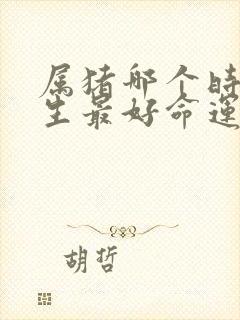 属猪哪个时
生最好命运
胡哲